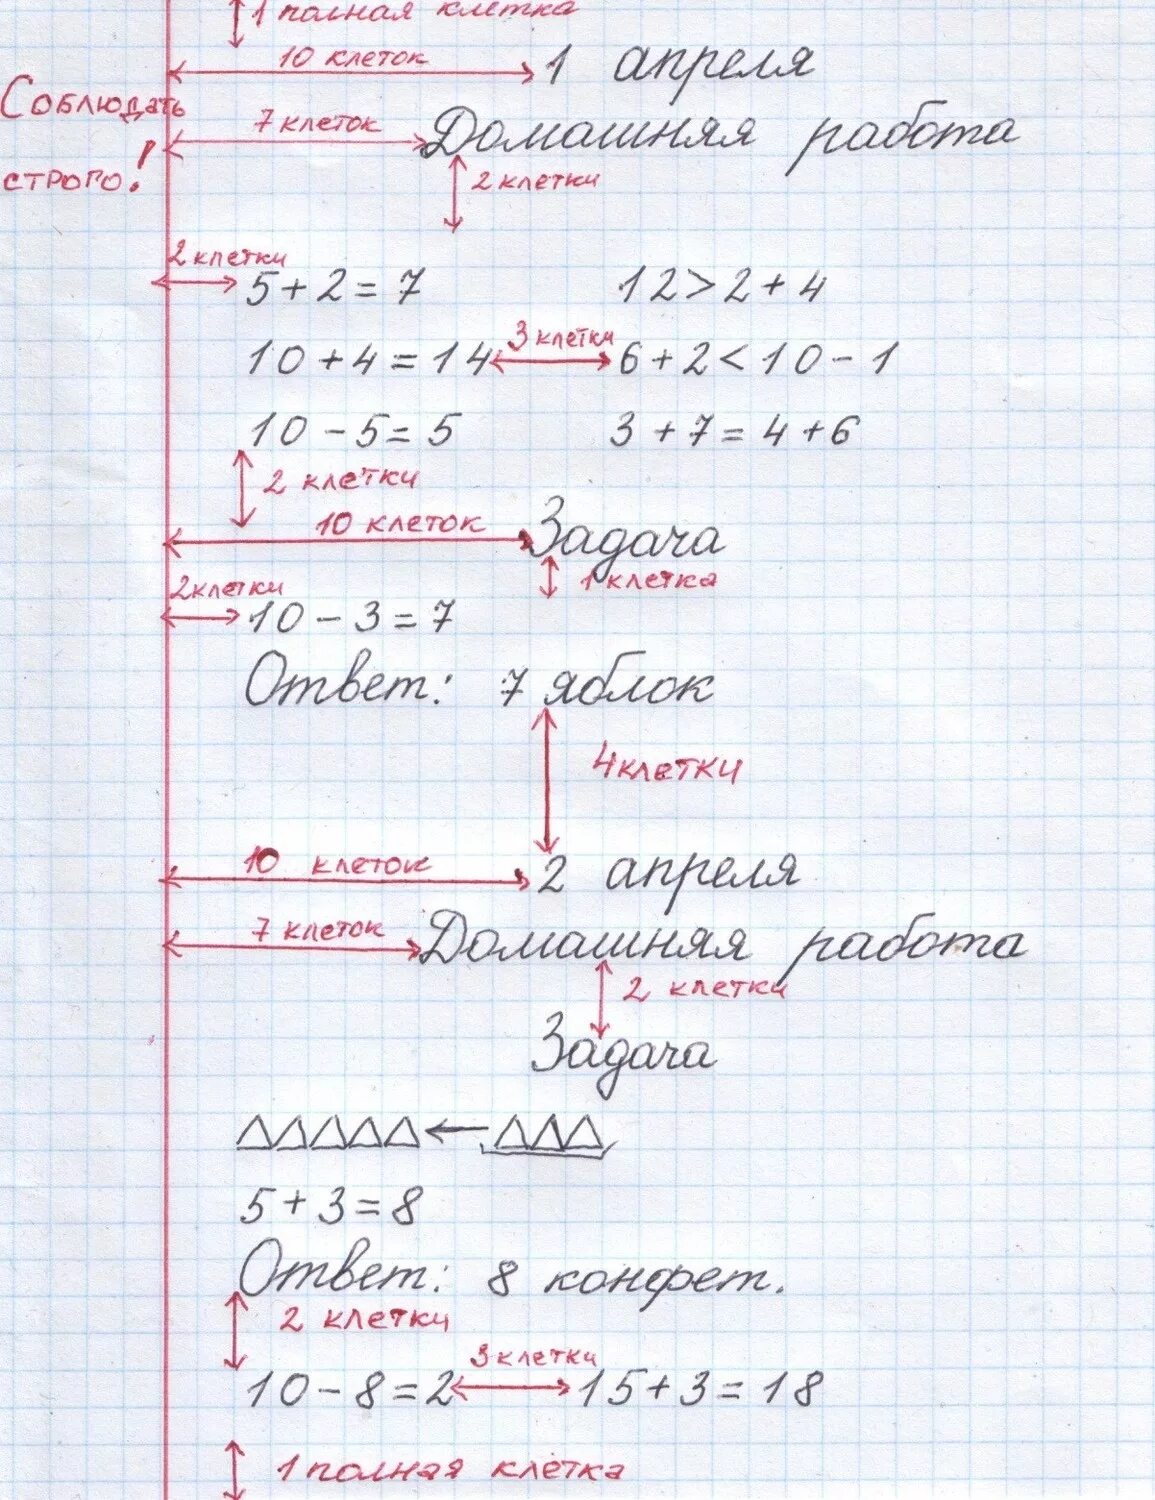 1 полная клетка
10 клеток 1 апреля
Соблюдать
7 клеток Домашняя работа
строго!
2 клетки
2 клетки
5+2=7 12>2+4
3 клетки
10+4=14 6+2<10-1
10-5=5 3+7=4+6
2 клетки
10 клеток Задача
2 клетки 1 клетка
10-3=7
Ответ: 7 яблок
4 клетки
10 клеток 2 апреля
7 клеток Домашняя работа
2 клетки
Задача
5+3=8
Ответ: 8 конфет.
2 клетки
3 клетки
10-8=2 15+3=18
1 полная клетка